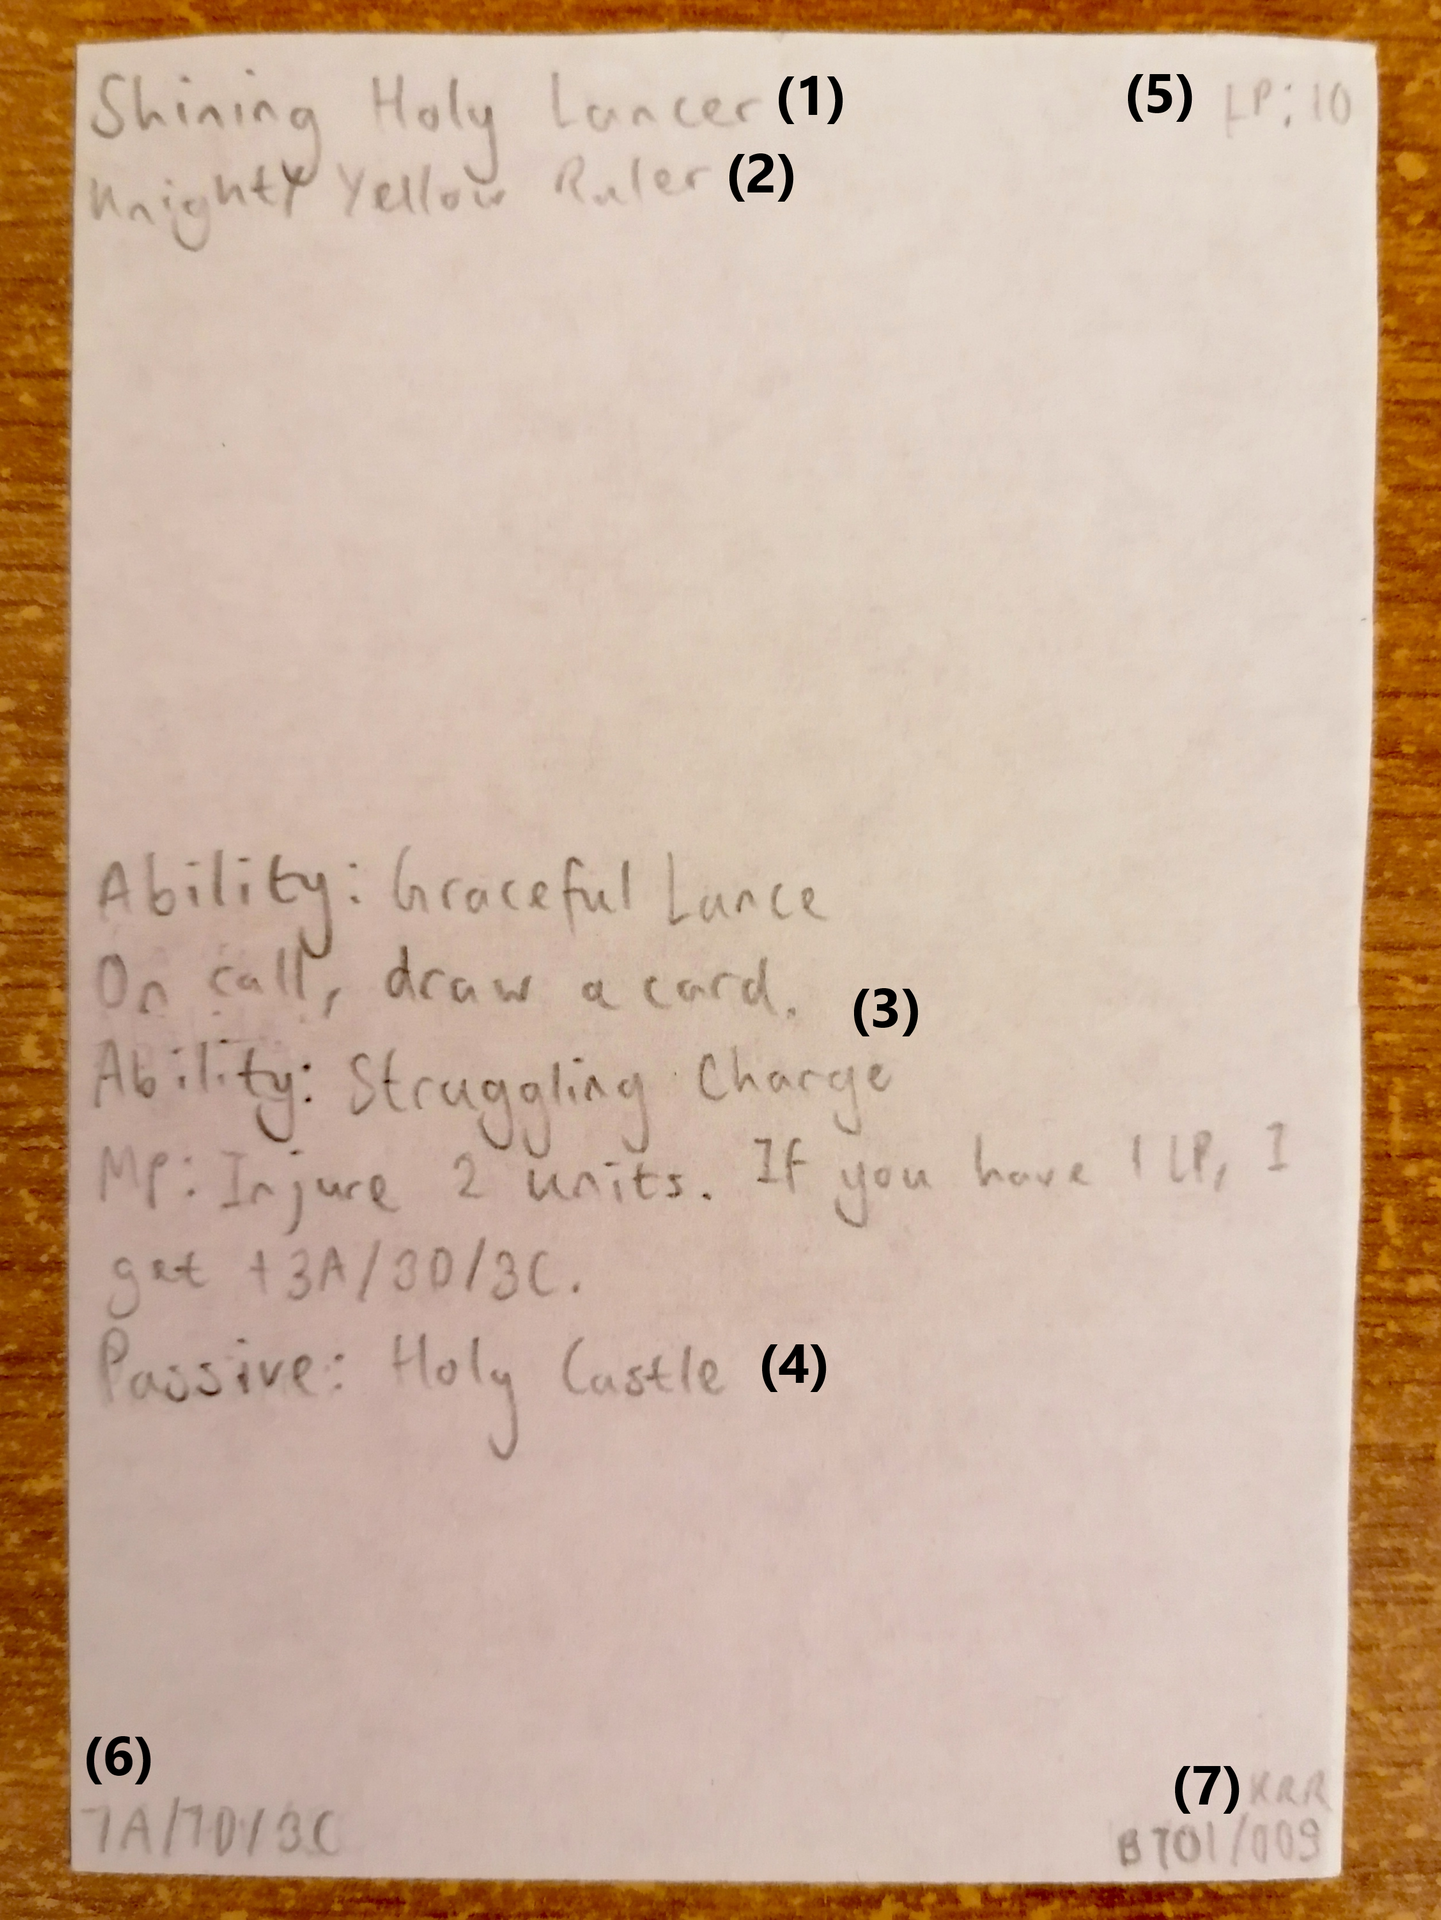 Shining Holy Lancer (1) (5) LP: 10
Knight Yellow Ruler (2)
Ability: Graceful Lance
On call, draw a card. (3)
Ability: Struggling Charge
MP: Injure 2 units. If you have 1 LP, I
get +3A/3D/3C.
Passive: Holy Castle (4)
(6)
7A/7D/3C
(7) RRR
BT01/009